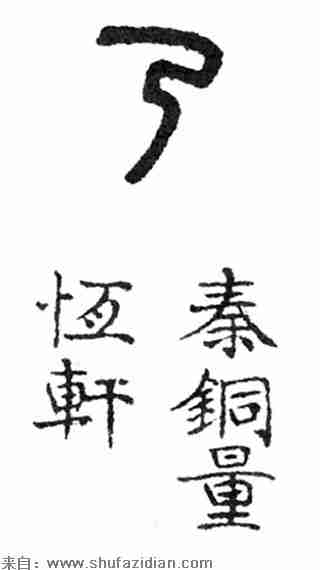 乃
秦銅量
恆軒
来自：www.shufazidian.com